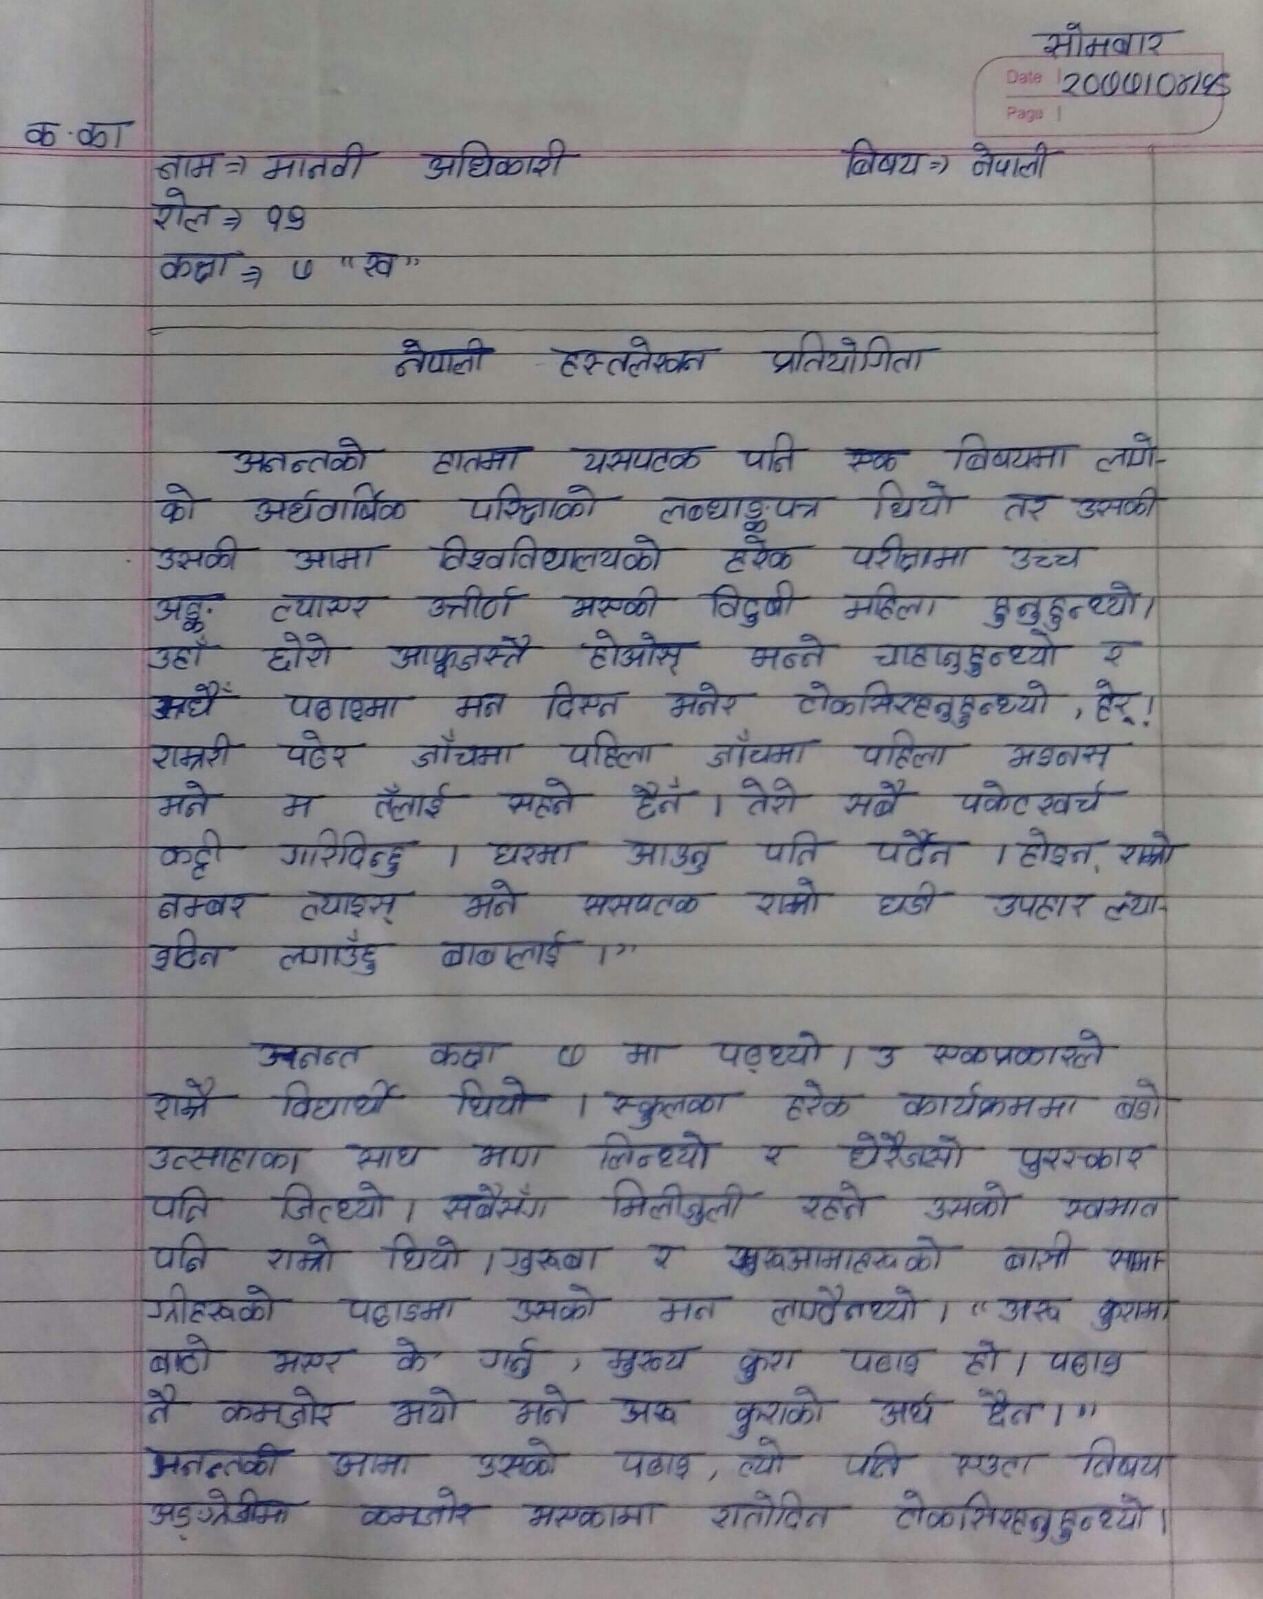 सोमबार
Date २०७७।०४।१५
Page
क.का
नाम ⇒ मानवी अधिकारी बिषय ⇒ नेपाली
रोल ⇒ १९
कक्षा ⇒ ७ "ख"
नेपाली हस्तलेखन प्रतियोगिता
अनन्तको हातमा यसपटक पनि एक बिषयमा लागे-
को अर्धवार्षिक परिक्षाको लब्धाङ्कपत्र थियो तर उसकी
उसकी आमा विश्वविद्यालयको हरेक परीक्षामा उच्च
अङ्क ल्याएर उत्तीर्ण भएकी विदुषी महिला हुनुहुन्थ्यो।
उहाँ छोरो आफूजस्तै होओस् भन्ने चाहानुहुन्थ्यो र
सधैँ पढाइमा मन दिएन भनेर टोकसिरहनुहुन्थ्यो, हेर्!
राम्ररी पढेर जाँचमा पहिला जाँचमा पहिला भइनस्
भने म तँलाई सहने छैनँ। तेरो सबै पकेटखर्च
कट्टी गरिदिन्छु। घरमा आउनु पनि पर्दैन। होइन, राम्रो
नम्बर ल्याइस् भने यसपटक राम्रो घडी उपहार ल्या-
इदिन लगाउँछु बाबालाई।"
अनन्त कक्षा ७ मा पढ्थ्यो। उ एकप्रकारले
राम्रै विद्यार्थी थियो। स्कुलका हरेक कार्यक्रममा बडो
उत्साहाका साथ भाग लिन्थ्यो र धेरैजसो पुरस्कार
पनि जित्थ्यो। सबैसँग मिलीजुली रहने उसको स्वभाव
पनि राम्रो थियो। गुरुबा र गुरुआमाहरुको बानी सामा
ग्रीहरुको पढाइमा उसको मन लाग्दैनथ्यो। "अरु कुरामा
बाठो भएर के गर्नु, मुख्य कुरा पढाइ हो। पढाइ
नै कमजोर भयो भने अरु कुराको अर्थ छैन।"
अनन्तकी आमा उसको पढाइ, त्यो पनि एउटा विषय
अङ्ग्रेजीमा कमजोर भएकामा रातोदिन टोकसिरहनुहुन्थ्यो।